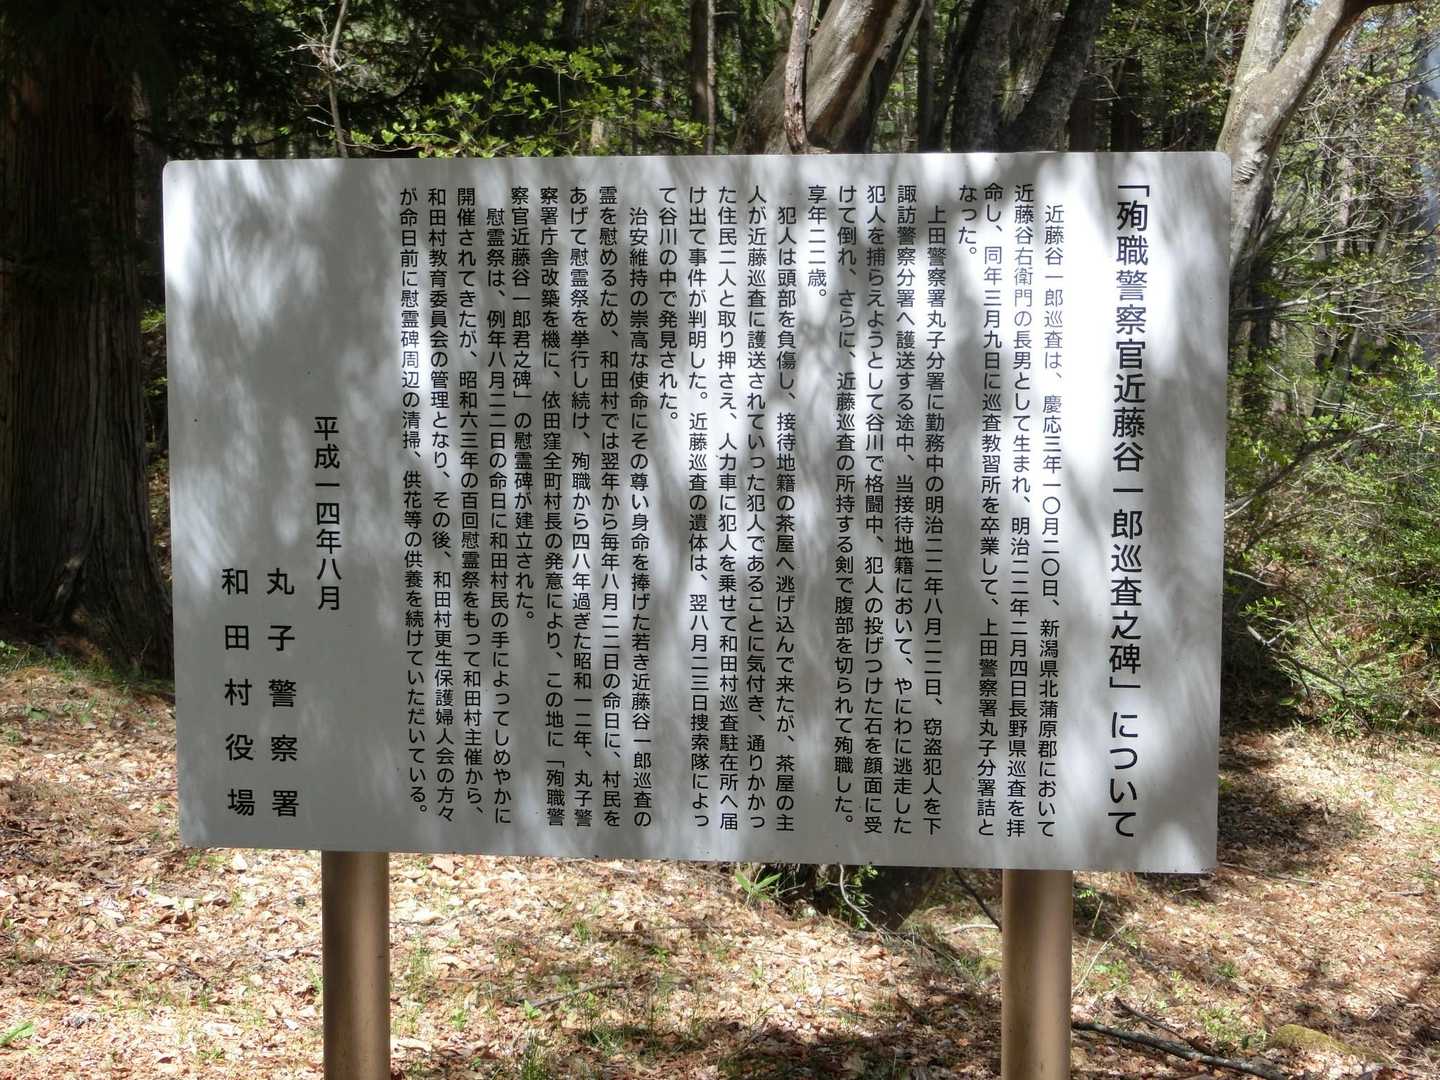 「殉職警察官近藤谷一郎巡査之碑」について
近藤谷一郎巡査は、慶応三年一〇月二〇日、新潟県北蒲原郡において
近藤谷右衛門の長男として生まれ、明治二二年二月四日長野県巡査を拝
命し、同年三月九日に巡査教習所を卒業して、上田警察署丸子分署詰と
なった。
上田警察署丸子分署に勤務中の明治二二年八月二二日、窃盗犯人を下
諏訪警察分署へ護送する途中、当接待地籍において、やにわに逃走した
犯人を捕らえようとして谷川で格闘中、犯人の投げつけた石を顔面に受
けて倒れ、さらに、近藤巡査の所持する剣で腹部を切られて殉職した。
享年二二歳。
犯人は頭部を負傷し、接待地籍の茶屋へ逃げ込んで来たが、茶屋の主
人が近藤巡査に護送されていった犯人であることに気付き、通りかかっ
た住民二人と取り押さえ、人力車に犯人を乗せて和田村巡査駐在所へ届
け出て事件が判明した。近藤巡査の遺体は、翌八月二三日捜索隊によっ
て谷川の中で発見された。
治安維持の崇高な使命にその尊い身命を捧げた若き近藤谷一郎巡査の
霊を慰めるため、和田村では翌年から毎年八月二二日の命日に、村民を
あげて慰霊祭を挙行し続け、殉職から四八年過ぎた昭和一二年、丸子警
察署庁舎改築を機に、依田窪全町村長の発意により、この地に「殉職警
察官近藤谷一郎君之碑」の慰霊碑が建立された。
慰霊祭は、例年八月二二日の命日に和田村民の手によってしめやかに
開催されてきたが、昭和六三年の百回慰霊祭をもって和田村主催から、
和田村教育委員会の管理となり、その後、和田村更生保護婦人会の方々
が命日前に慰霊碑周辺の清掃、供花等の供養を続けていただいている。
平成一四年八月
丸子警察署
和田村役場